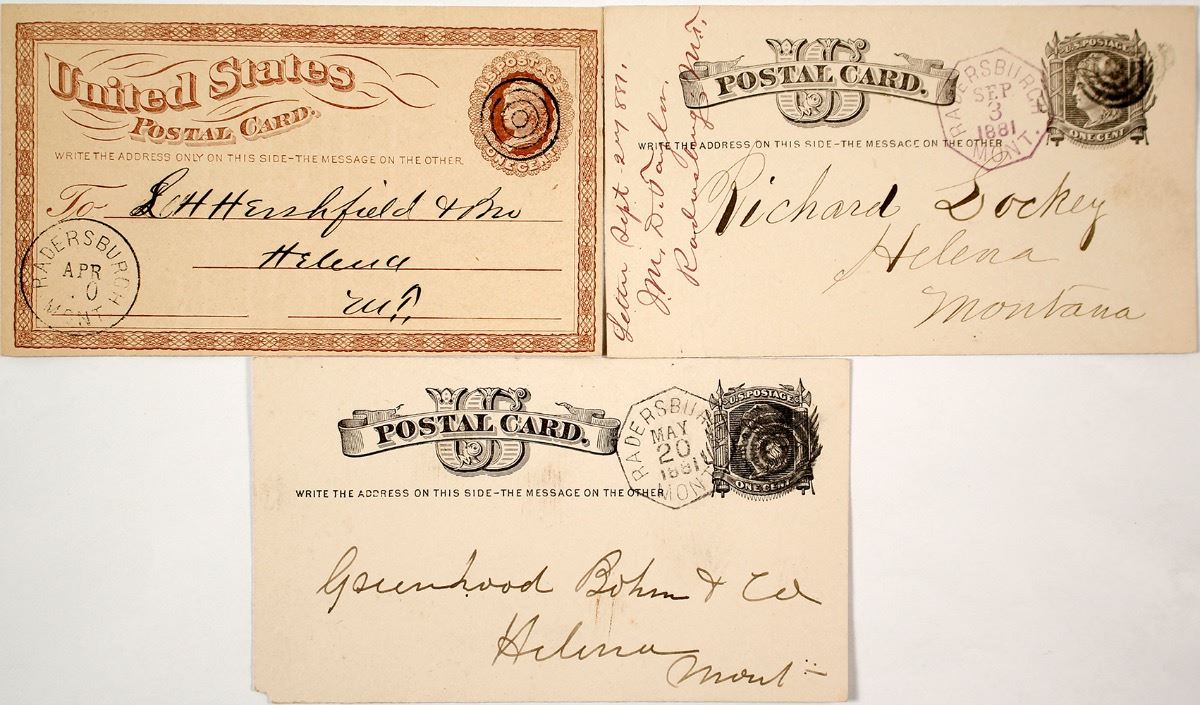 United States
POSTAL CARD.
U.S. POSTAGE
ONE CENT
WRITE THE ADDRESS ONLY ON THIS SIDE-THE MESSAGE ON THE OTHER
To L H Hershfield & Bro
Helena
M.T.
RADERSBURGH
APR
0
MONT.
US
POSTAL CARD.
U.S. POSTAGE
ONE CENT
RADERSBURGH
SEP
3
1881
MONT.
WRITE THE ADDRESS ON THIS SIDE-THE MESSAGE ON THE OTHER
Richard Lockey
Helena
Montana
Letter Sept
J.M. D.
US
POSTAL CARD.
U.S. POSTAGE
ONE CENT
RADERSBURGH
MAY
20
1881
MONT.
WRITE THE ADDRESS ON THIS SIDE-THE MESSAGE ON THE OTHER
Greenhood Bohm & Co
Helena
Mont